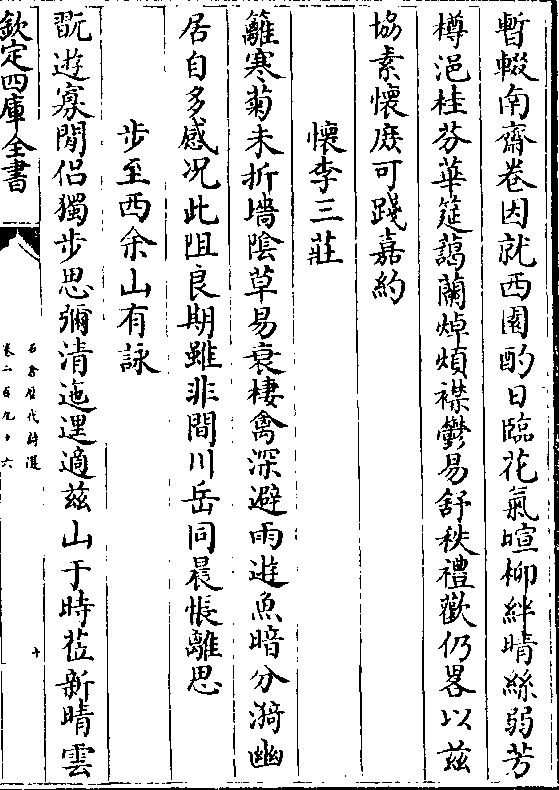 暫輟南齋卷因就西園酌日臨花氣暄柳絆晴絲弱芳
樽浥桂芬華筵藹蘭焯煩襟鬱易舒秩禮歡仍畧以兹
協素懷庶可踐嘉約
懷李三莊
籬寒菊未折墻陰草易衰棲禽深避雨遊魚暗分漪幽
居自多感况此阻良期雖非間川岳同晨悵離思
步至西余山有詠
翫遊寡閒侶獨步思彌清迤邐適兹山于時莅新晴雲
欽定四庫全書
石倉歷代詩選
卷二百九十六
十